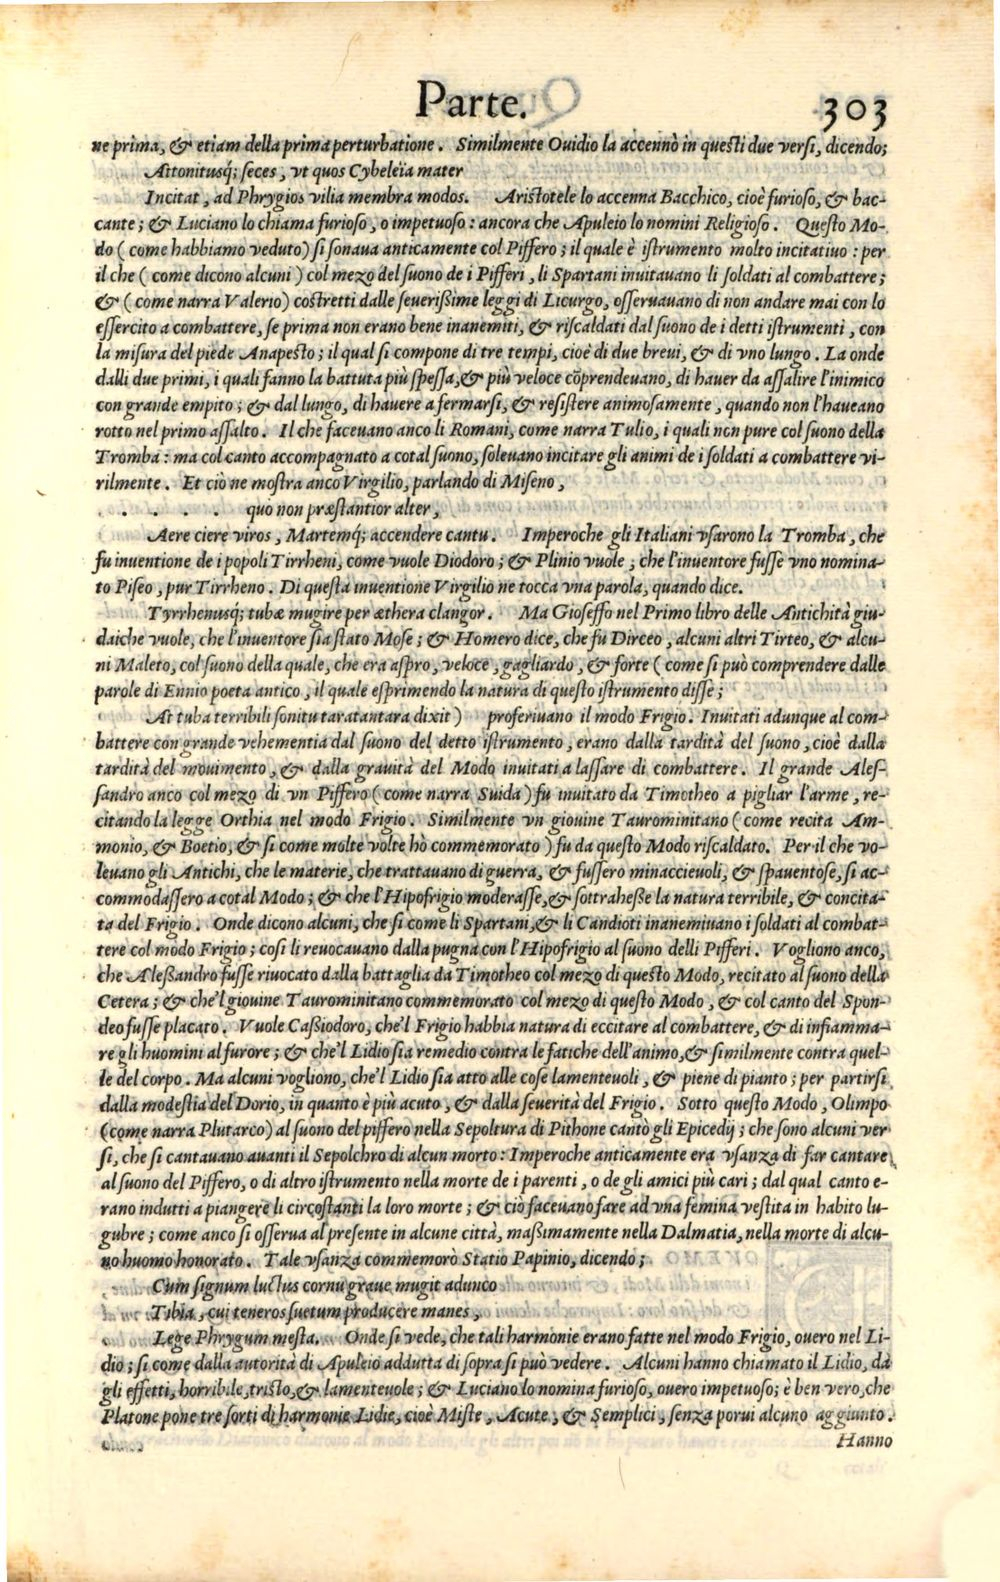 Parte. 303
ne prima, & etiam della prima perturbatione. Similmente Ouidio la accennò in questi due versi, dicendo;
Attonitusq́; seces, vt quos Cybeleïa mater
Incitat, ad Phrygios vilia membra modos. Aristotele lo accenna Bacchico, cioè furioso, & bac-
cante; & Luciano lo chiama furioso, o impetuoso: ancora che Apuleio lo nomini Religioso. Questo Mo-
do (come habbiamo veduto) si sonaua anticamente col Piffero; il quale è istrumento molto incitatiuo: per
il che (come dicono alcuni) col mezo del suono de i Pifferi, li Spartani inuitauano li soldati al combattere;
& (come narra Valerio) costretti dalle seuerißime leggi di Licurgo, osseruauano di non andare mai con lo
essercito a combattere, se prima non erano bene inanemiti, & riscaldati dal suono de i detti istrumenti, con
la misura del piede Anapesto; il qual si compone di tre tempi, cioè di due breui, & di vno lungo. La onde
dalli due primi, i quali fanno la battuta più spessa, & più veloce cōprendeuano, di hauer da assalire l'inimico
con grande empito; & dal lungo, di hauere a fermarsi, & resistere animosamente, quando non l'haueano
rotto nel primo assalto. Il che faceuano anco li Romani, come narra Tulio, i quali non pure col suono della
Tromba: ma col canto accompagnato a cotal suono, soleuano incitare gli animi de i soldati a combattere vi-
rilmente. Et ciò ne mostra anco Virgilio, parlando di Miseno,
. . . . . quo non præstantior alter,
Aere ciere viros, Martemq́; accendere cantu. Imperoche gli Italiani vsarono la Tromba, che
fu inuentione de i popoli Tirrheni, come vuole Diodoro; & Plinio vuole, che l'inuentore fusse vno nomina-
to Piseo, pur Tirrheno. Di questa inuentione Virgilio ne tocca vna parola, quando dice.
Tyrrhenusq́; tubæ mugire per æthera clangor. Ma Gioseffo nel Primo libro delle Antichità giu-
daiche vuole, che l'inuentore sia stato Mose; & Homero dice, che fu Dirceo, alcuni altri Tirteo, & alcu-
ni Maleto, col suono della quale, che era aspro, veloce, gagliardo, & forte (come si può comprendere dalle
parole di Ennio poeta antico, il quale esprimendo la natura di questo istrumento disse;
At tuba terribili sonitu taratantara dixit) proferiuano il modo Frigio. Inuitati adunque al com-
battere con grande vehementia dal suono del detto istrumento, erano dalla tardità del suono, cioè dalla
tardità del mouimento, & dalla grauità del Modo inuitati a lassare di combattere. Il grande Ales-
sandro anco col mezo di vn Piffero (come narra Suida) fu inuitato da Timotheo a pigliar l'arme, re-
citando la legge Orthia nel modo Frigio. Similmente vn giouine Taurominitano (come recita Am-
monio, & Boetio, & si come molte volte hò commemorato) fu da questo Modo riscaldato. Per il che vo-
leuano gli Antichi, che le materie, che trattauano di guerra, & fussero minaccieuoli, & spauentose, si ac-
commodassero a cotal Modo; & che l'Hipofrigio moderasse, & sottraheße la natura terribile, & concita-
ta del Frigio. Onde dicono alcuni, che si come li Spartani, & li Candioti inanemiuano i soldati al combat-
tere col modo Frigio; cosi li reuocauano dalla pugna con l'Hipofrigio al suono delli Pifferi. Vogliono anco,
che Aleßandro fusse riuocato dalla battaglia da Timotheo col mezo di questo Modo, recitato al suono della
Cetera; & che'l giouine Taurominitano commemorato col mezo di questo Modo, & col canto del Spon-
deo fusse placato. Vuole Caßiodoro, che'l Frigio habbia natura di eccitare al combattere, & di infiamma-
re gli huomini al furore; & che'l Lidio sia remedio contra le fatiche dell'animo, & similmente contra quel-
le del corpo. Ma alcuni vogliono, che'l Lidio sia atto alle cose lamenteuoli, & piene di pianto; per partirsi
dalla modestia del Dorio, in quanto è più acuto, & dalla seuerità del Frigio. Sotto questo Modo, Olimpo
(come narra Plutarco) al suono del piffero nella Sepoltura di Pithone cantò gli Epicedij; che sono alcuni ver
si, che si cantauano auanti il Sepolchro di alcun morto: Imperoche anticamente era vsanza di far cantare
al suono del Piffero, o di altro istrumento nella morte de i parenti, o de gli amici più cari; dal qual canto e-
rano indutti a piangere li circostanti la loro morte; & ciò faceuano fare ad vna femina vestita in habito lu-
gubre; come anco si osserua al presente in alcune città, maßimamente nella Dalmatia, nella morte di alcu-
no huomo honorato. Tale vsanza commemorò Statio Papinio, dicendo;
Cum signum luctus cornu graue mugit adunco
Tibia, cui teneros suetum producere manes,
Lege Phrygum mesta. Onde si vede, che tali harmonie erano fatte nel modo Frigio, ouero nel Li-
dio; si come dalla autorità di Apuleio addutta di sopra si può vedere. Alcuni hanno chiamato il Lidio, da
gli effetti, horribile, tristo, & lamenteuole; & Luciano lo nomina furioso, ouero impetuoso; è ben vero, che
Platone pone tre sorti di harmonie Lidie, cioè Miste, Acute, & Semplici, senza porui alcuno aggiunto.
Hanno